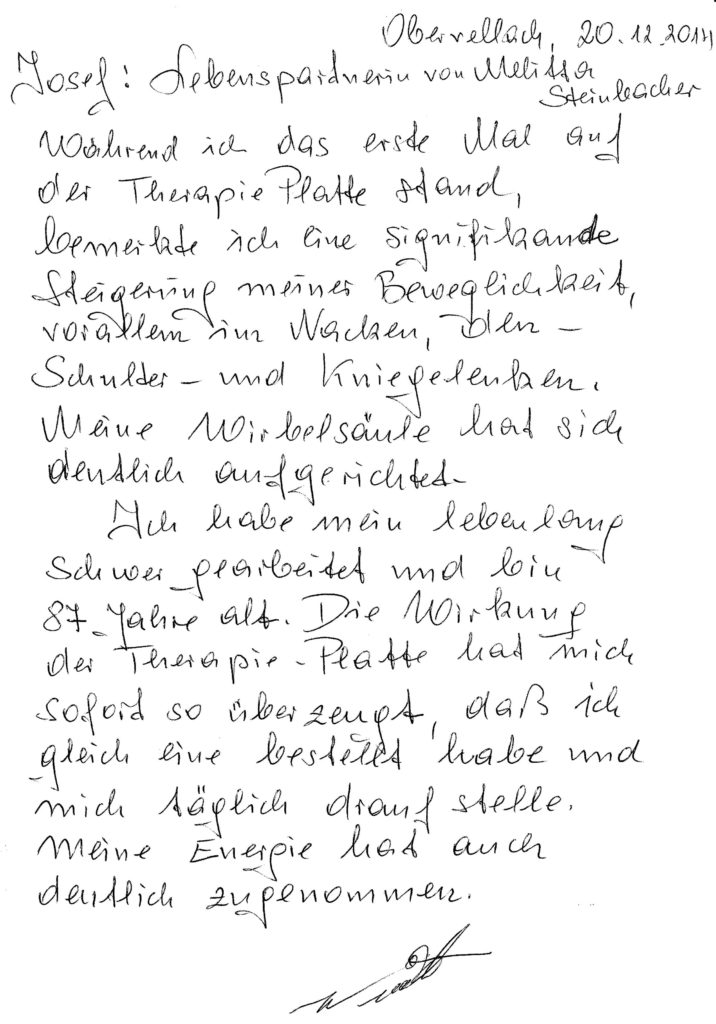 Obervellach, 20.12.2014
Josef: Lebenspartnerin von Melitta
Steinbacher
Während ich das erste Mal auf
der Therapie Platte stand,
bemerkte ich eine signifikande
Steigerung meiner Beweglichkeit,
vorallem im Nacken, den -
Schulter - und Kniegelenken.
Meine Wirbelsäule hat sich
deutlich aufgerichtet.
Ich habe mein lebenlang
schwer gearbeitet und bin
87 Jahre alt. Die Wirkung
der Therapie - Platte hat mich
soford so überzeugt, daß ich
gleich eine bestellt habe und
mich täglich drauf stelle.
Meine Energie hat auch
deutlich zugenommen.